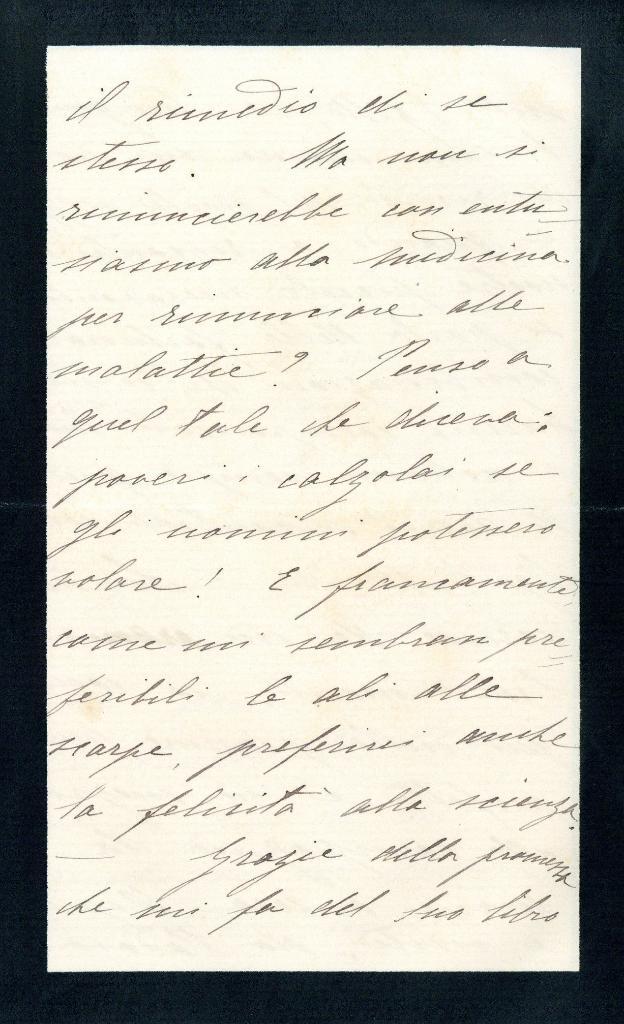 il rimedio di se
stesso. Ma non si
rinuncierebbe con entu=
siasmo alla medicina
per rinunciare alle
malattie? Penso a
quel tale che diceva:
poveri i calzolai se
gli uomini potessero
volare! E francamente,
come mi sembran pre=
feribili le ali alle
scarpe, preferirei anche
la felicità alla scienza.
— Grazie della promessa
che mi fa del suo libro